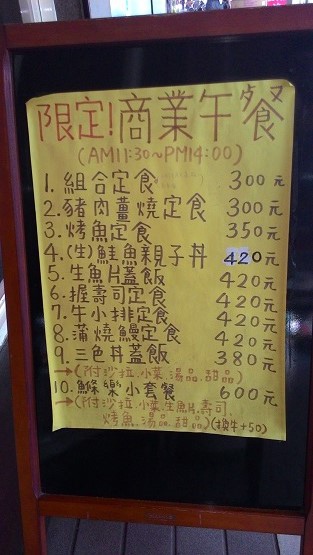 限定!商業午餐
(AM11:30~PM14:00)
1. 組合定食 300元
2. 豬肉薑燒定食 300元
3. 烤魚定食 350元
4. (生)鮭魚親子丼 420元
5. 生魚片蓋飯 420元
6. 握壽司定食 420元
7. 牛小排定食 420元
8. 蒲燒鰻定食 420元
9. 三色丼蓋飯 380元
→(附沙拉.小菜.湯品.甜品)
10. 鰷樂小套餐 600元
→(附沙拉.小菜.生魚片.壽司.
烤魚.湯品.甜品)(換牛+50)